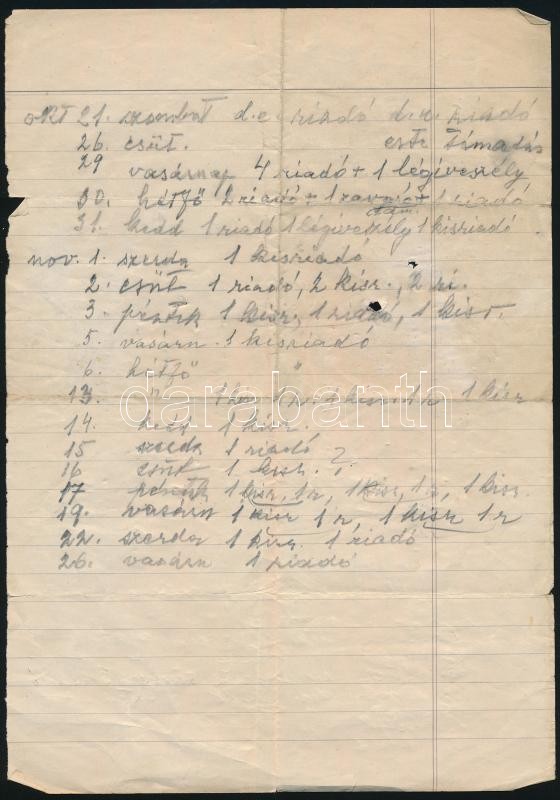 okt 21. szombat d.e. riadó d.u. riadó
26. csüt. este támadás
29 vasárnap 4 riadó + 1 légiveszély
30. hétfő 2 riadó + 1 zavaró + 1 riadó
tám.
31. kedd 1 riadó 1 légiveszély 1 kisriadó.
nov. 1. szerda 1 kisriadó
2. csüt 1 riadó, 2 kisr., 2 ri.
3. péntek 1 kisr, 1 riadó, 1 kisr.
5. vasárn. 1 kisriadó
6. hétfő "
13. " 1 kisr
14. kedd 1 kisr.
15 szerda 1 riadó
16 csüt 1 kisr. ?
17 péntek 1 kisr, 1 r, 1 kisr, 1 r, 1 kisr.
19. vasárn 1 kisr 1 r, 1 kisr 1 r
22. szerda 1 kisr. 1 riadó
26. vasárn 1 riadó
darabanth